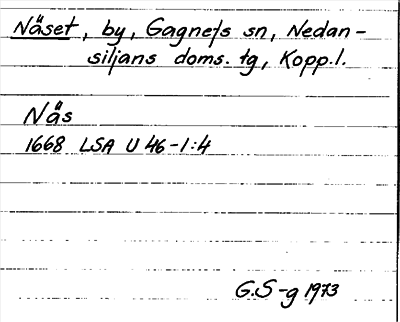 Näset, by, Gagnefs sn, Nedan-
siljans doms. tg, Kopp.l.
Näs
1668 LSA U 46-1:4
G.S-g 1973